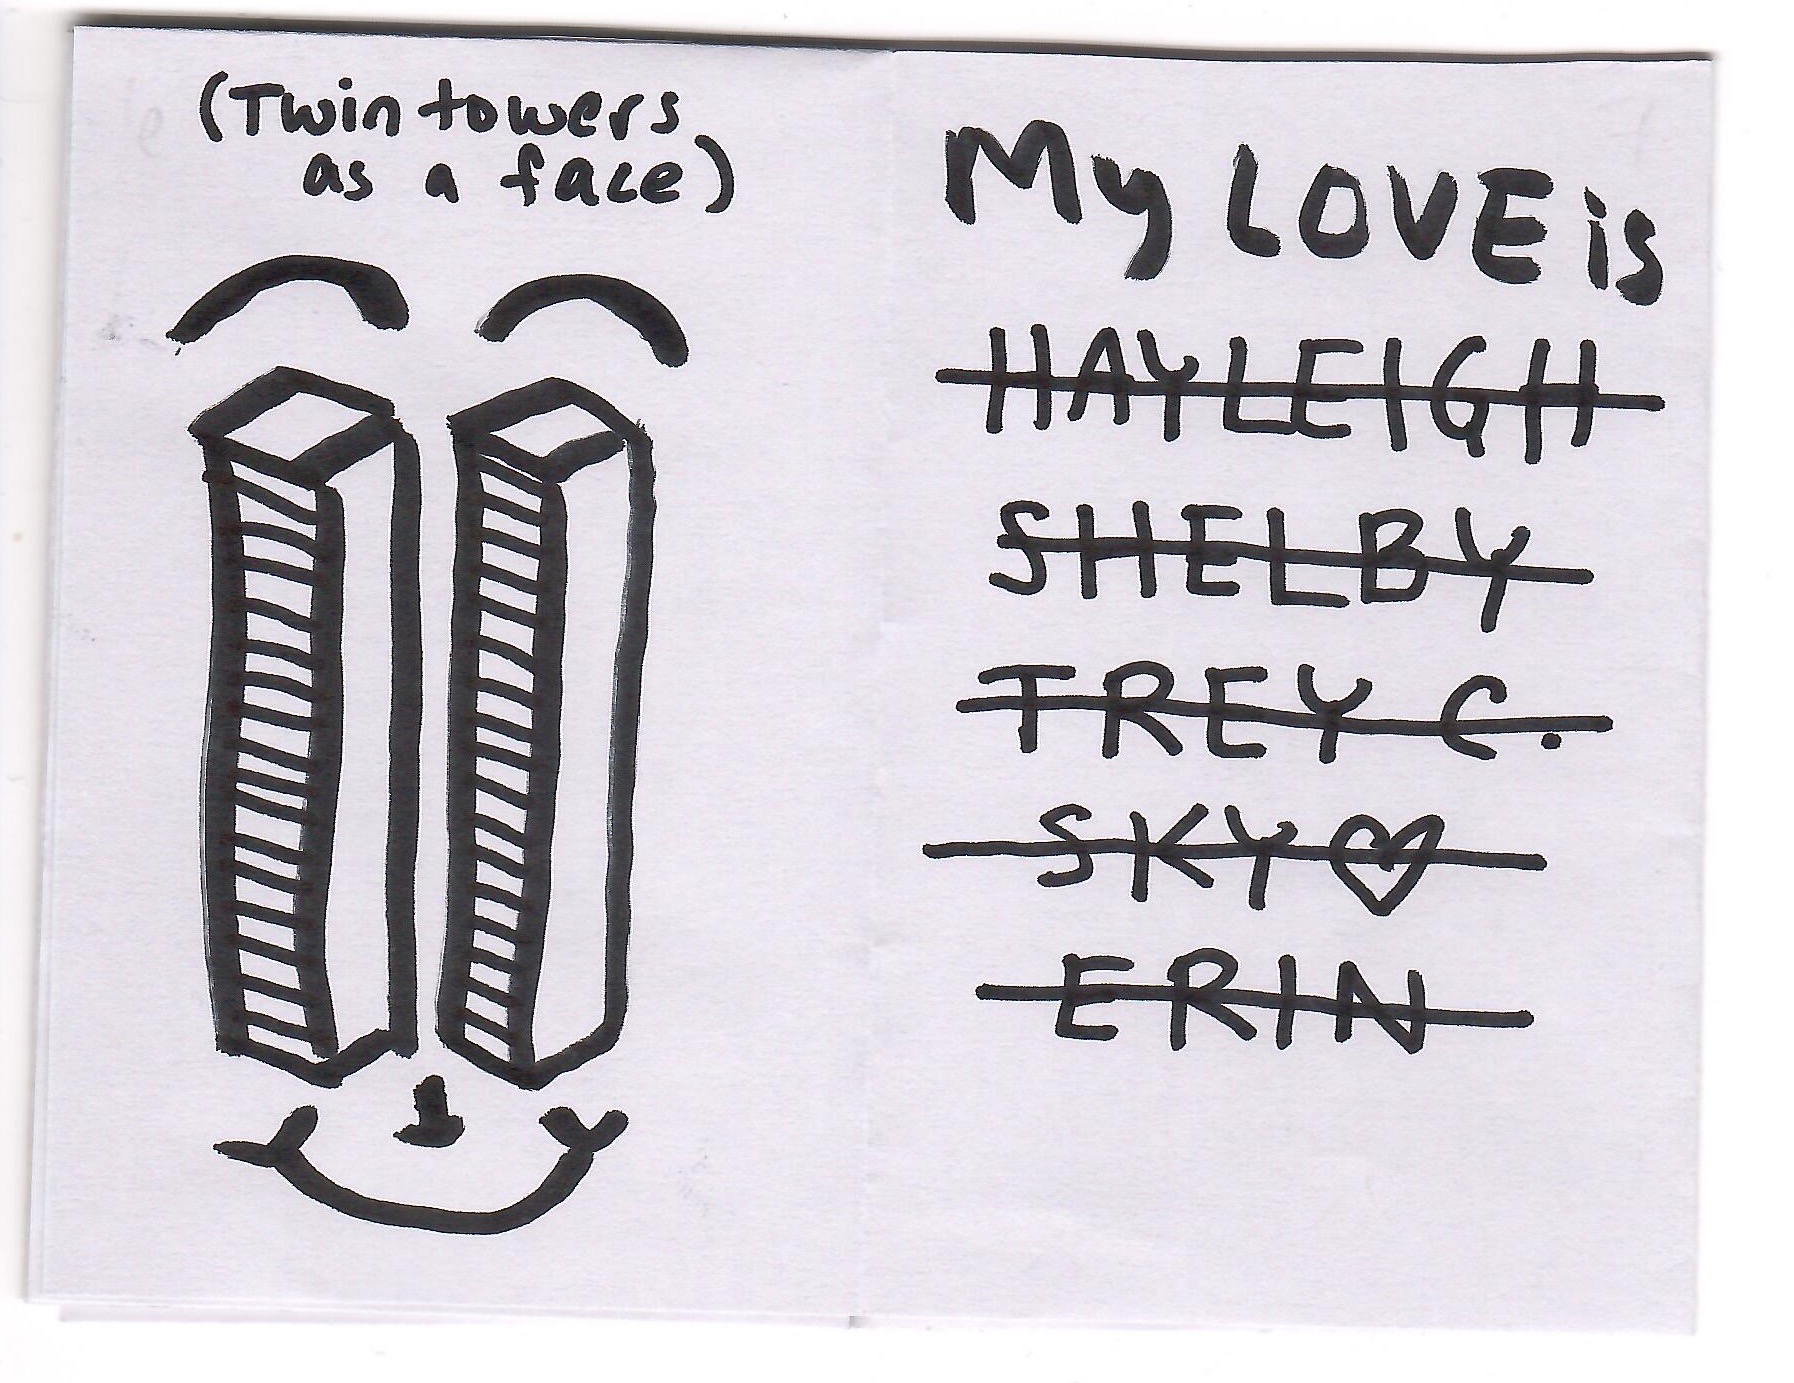 (Twin towers
as a face)
My LOVE is
HAYLEIGH
SHELBY
TREY C.
SKY♡
ERIN